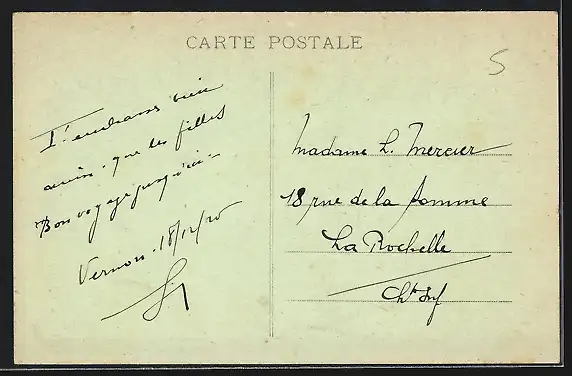 CARTE POSTALE
S
T'embrasse bien
ainsi que les filles
Bon voyage jusqu'ici
Vernon. 18/12/20
Madame L. Mercier
18 rue de la pomme
La Rochelle
Chte Inf